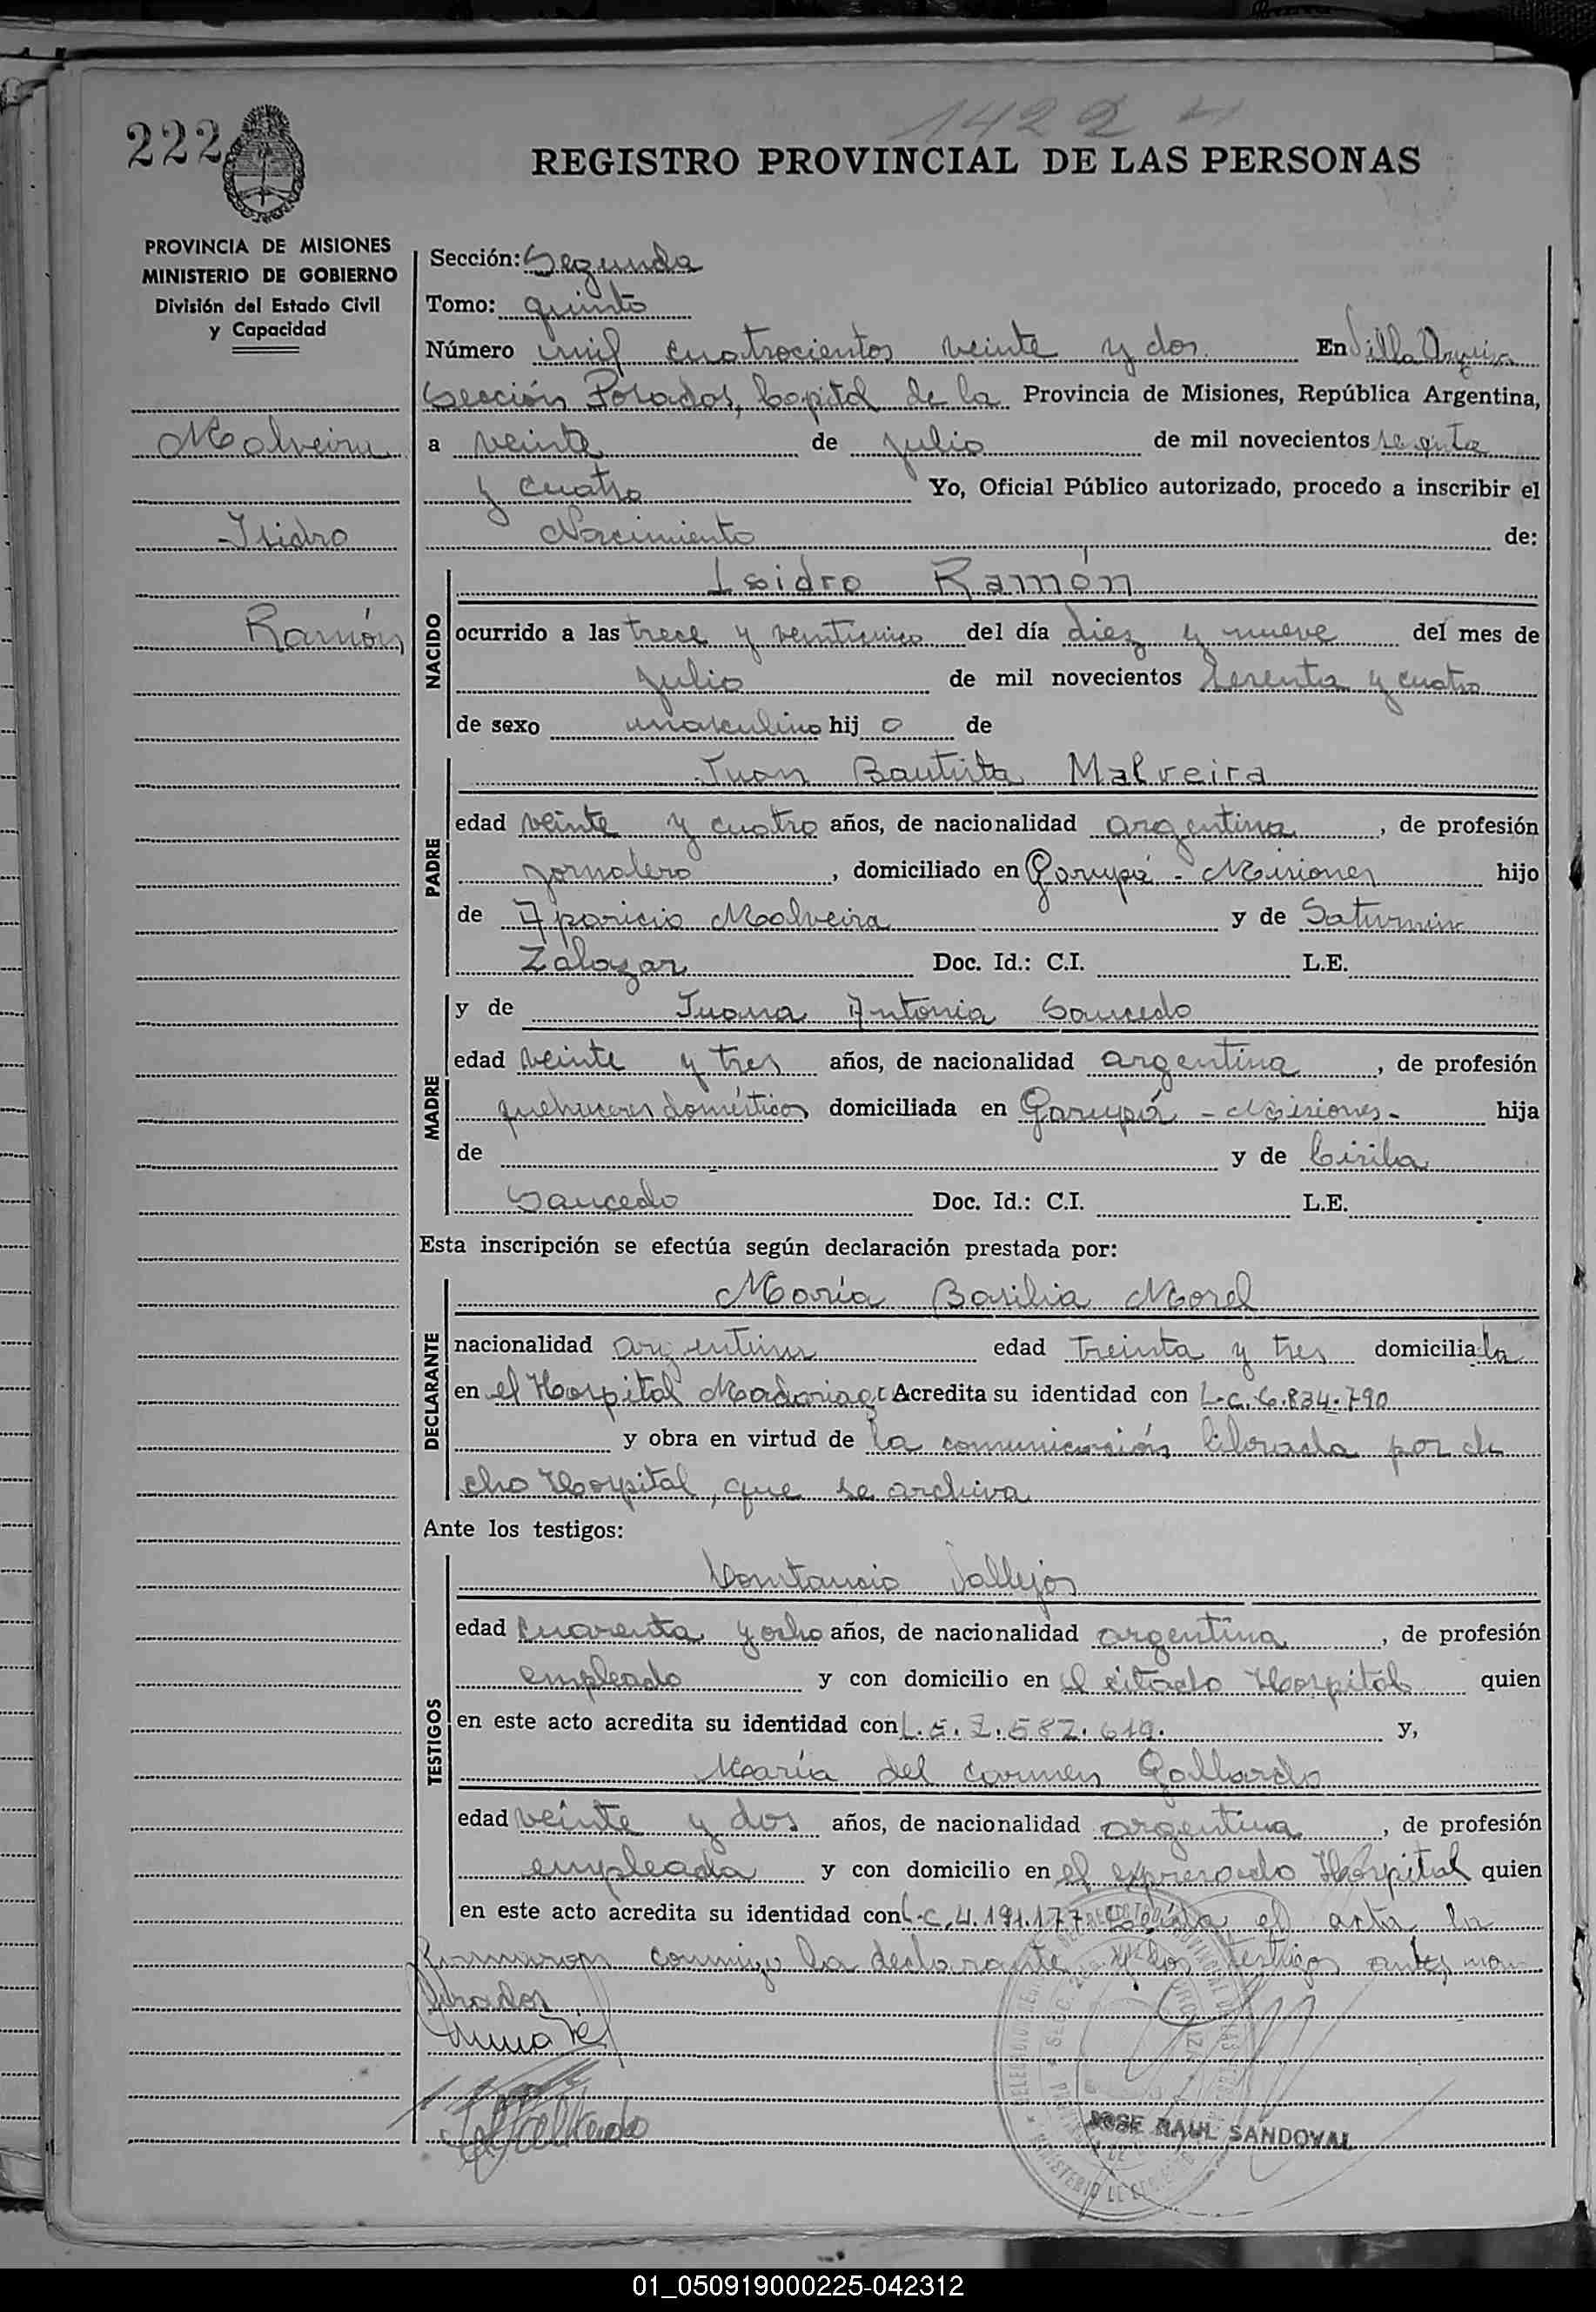 1422
222
REGISTRO PROVINCIAL DE LAS PERSONAS
PROVINCIA DE MISIONES
MINISTERIO DE GOBIERNO
División del Estado Civil
y Capacidad
Malveira
Isidro
Ramón
Sección: Segunda
Tomo: quinto
Número mil cuatrocientos veinte y dos En Villa Urquiza
Sección Posadas, Capital de la Provincia de Misiones, República Argentina,
a veinte de julio de mil novecientos sesenta
y cuatro Yo, Oficial Público autorizado, procedo a inscribir el
Nacimiento de:
NACIDO
Isidro Ramón
ocurrido a las trece y veinticinco del día diez y nueve del mes de
julio de mil novecientos sesenta y cuatro
de sexo masculino hij o de
PADRE
Juan Bautista Malveira
edad veinte y cuatro años, de nacionalidad argentina, de profesión
jornalero, domiciliado en Garupá - Misiones hijo
de Aparicio Malveira y de Saturnin
Zalazar Doc. Id.: C.I. L.E.
MADRE
y de Juana Antonia Saucedo
edad veinte y tres años, de nacionalidad argentina, de profesión
quehaceres domésticos domiciliada en Garupá - Misiones - hija
de - y de Cirila
Saucedo Doc. Id.: C.I. L.E.
Esta inscripción se efectúa según declaración prestada por:
DECLARANTE
María Basilia Morel
nacionalidad argentina edad treinta y tres domicilia da
en el Hospital Madariaga Acredita su identidad con L.C. 6.834.790
y obra en virtud de la comunicación librada por di
cho Hospital, que se archiva
Ante los testigos:
TESTIGOS
Constancio Vallejos
edad cuarenta y ocho años, de nacionalidad argentina, de profesión
empleado y con domicilio en el citado Hospital quien
en este acto acredita su identidad con L.E. 2.582.619. y,
María del Carmen Gallardo
edad veinte y dos años, de nacionalidad argentina, de profesión
empleada y con domicilio en el expresado Hospital quien
en este acto acredita su identidad con L.C. 4.191.177 Leída el acta la
firmaron conmigo la declarante y los testigos antes nom
brados
JOSE RAUL SANDOVAL
01_050919000225-042312